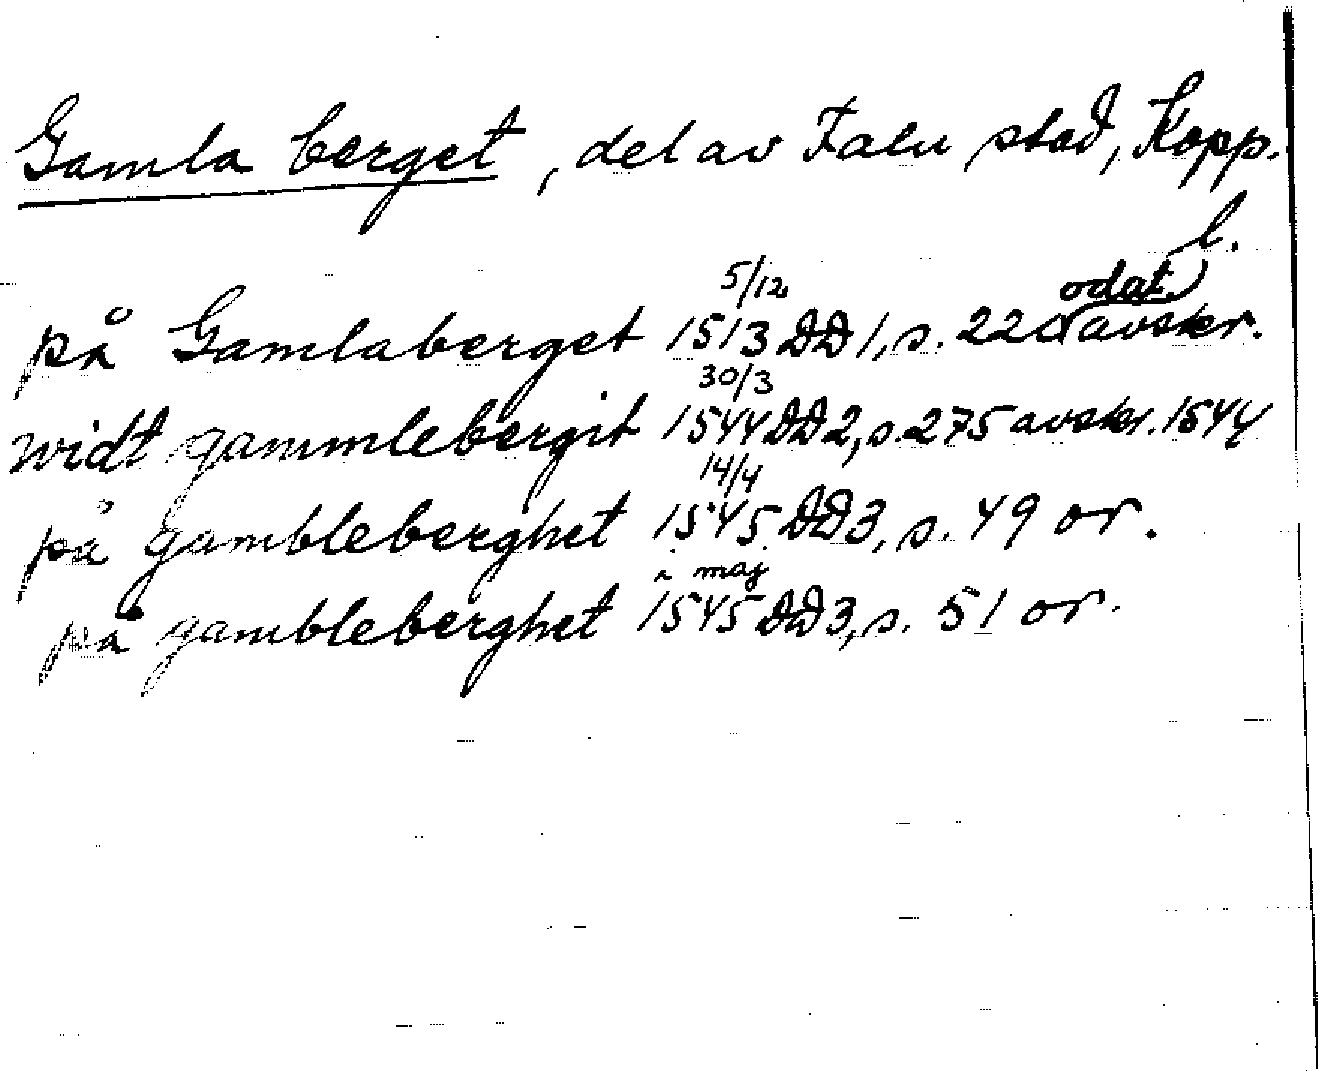 Gamla berget, del av Falu stad, Kopp.
l.
på Gamlaberget 5/12 1513 DD 1, s. 220 (odat.) avskr.
widt gammlebergit 30/3 1544 DD 2, s. 275 avskr. 1544
på gambleberghet 14/4 1545 DD 3, s. 49 or.
på gambleberghet i maj 1545 DD 3, s. 51 or.